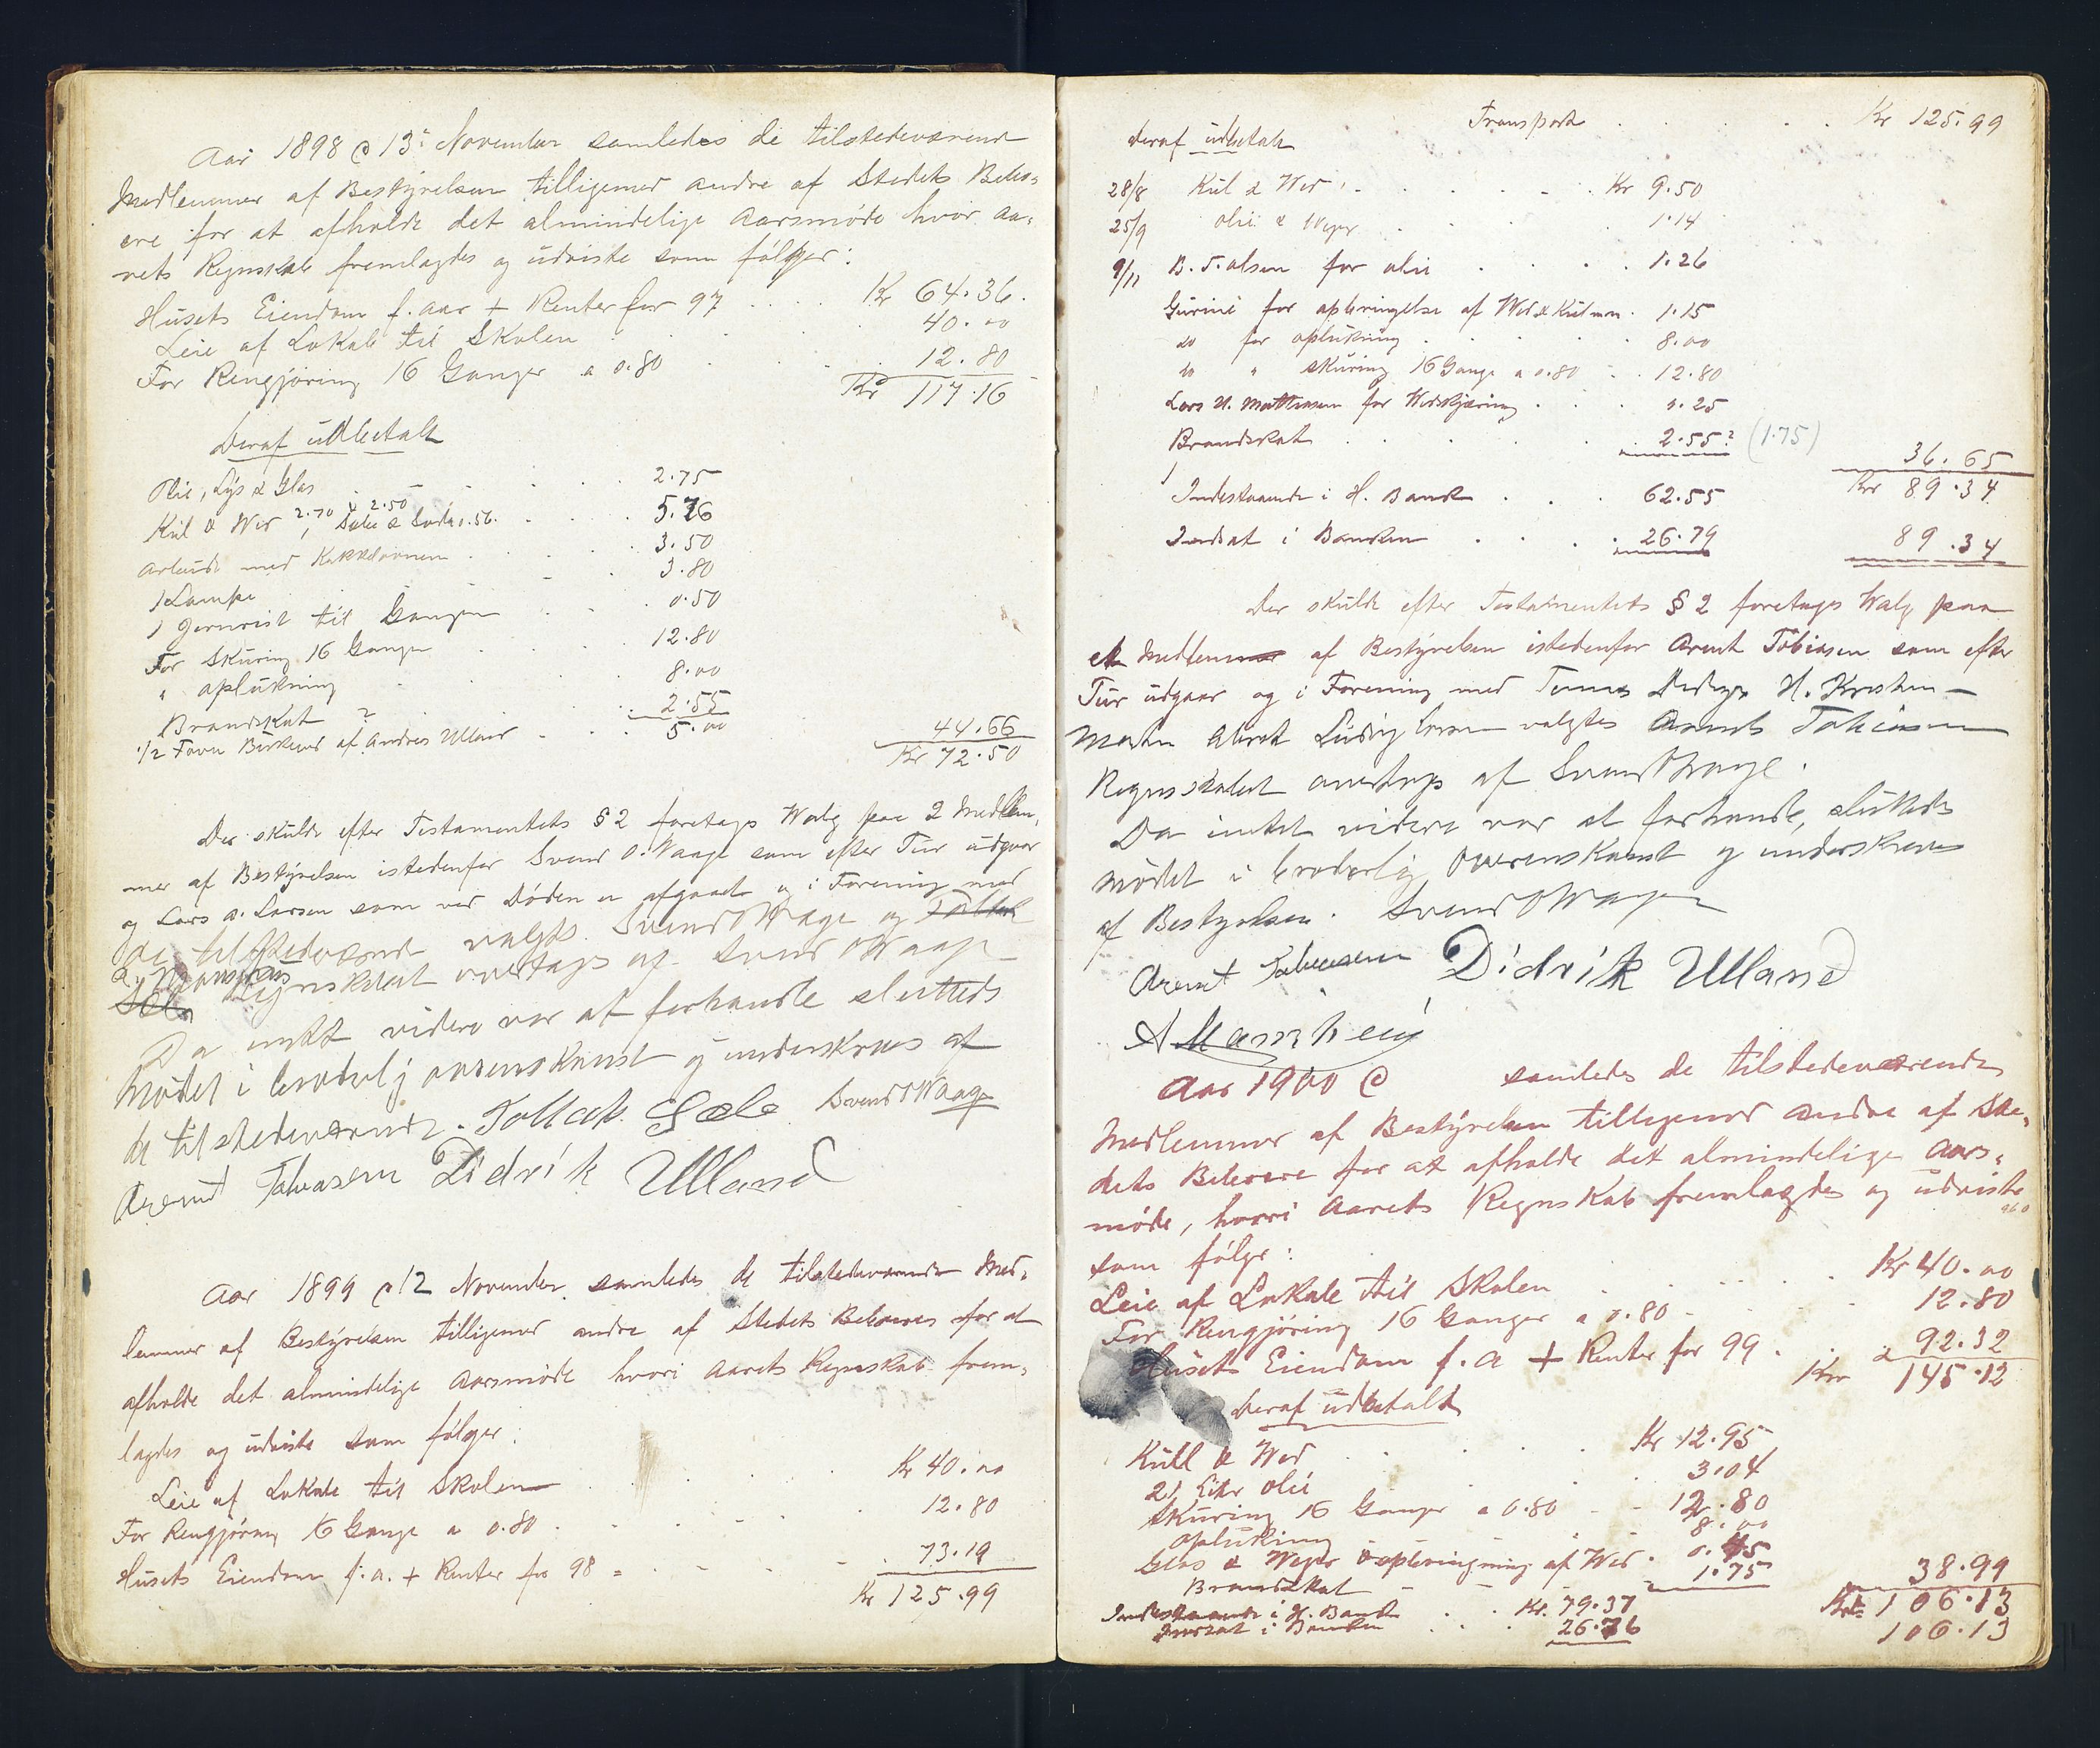 Aar 1898 @ 13de November samledes de tilstedeværend
Medlemmer af Bestÿrelsen tilligemed andre af Stedets Bebo=
ere for at afholde det almindelige Aarsmöde hvor Aa=
rets Regnskab fremlagdes og udviste som fölger:
Husets Eiendom f. Aar + Renter for 97 .... Kr 64.36.
Leie af Lokale til Skolen . 40.00
For Rengjöring 16 Ganger a 0.80 . . 12.80
Kr 117.16
Deraf udbetalt
Olie, Lys & Glas . . . . 2.75
Kul & Wed 2.70 & 2.50, Sæbe & Soda 0.56. . . . 5.76
Arbeide med Kakkelovnen . . . . 3.50
1 Lampe . . . 3.80
1 Jernrist til Gangen . . . 0.50
For Skuring 16 Ganger . . . 12.80
" oplukning . . . 8.00
Brandskat ? . . . 2.55
1/2 Favn Birkeved af Andreas Ulland . . . 5.00
44.66
Kr 72.50
Der skulde efter Testamentets § 2 foretages Walg paa 2 Medlem,
mer af Bestÿrelsen istedenfor Svend O. Waage som efter Tur udgaar
og Lars A. Larsen som ved Döden er afgaaet og i Forening med
de tilstedeværende valgtes Svend O Waage og Tollak
Sæle Regnskabet overtages af Svend O Waage
Da intet videre var at forhandle sluttedes
Mödet i broderlig overenskomst og underskreves af
de tilstedeværende. Tollak Sæle Svend O Waage
Arent Tobiasen Didrik Ulland
Aar 1899 @ 12 November samledes de tilstedeværende Med=
lemmer af Bestÿrelsen tilligemed andre af Stedets Beboere for at
afholde det almindelige Aarsmöde hvori Aarets Regnskab frem=
lagdes og udviste som fölger:
Leie af Lokale til Skolen . . . Kr 40.00
For Rengjöring 16 Gange a 0.80 . . . 12.80
Husets Eiendom f. a. + Renter for 98 = . . . 73.19
Kr 125.99
Transport . . . . . Kr 125.99
Deraf udbetalt
28/8 Kul & Wed . . . . . Kr 9.50
25/9 Olie & Weger . . . 1.14
9/11 B. T. Olsen for olie . . . . 1.26
Gurine for opbringelse af Wed & Kul m.m. 1.15
do for oplukning . . . . . 8.00
do " Skuring 16 Gange a 0.80 . . 12.80
Lars H. Mathiasen for Wedskjæring . . . 0.25
Brandskat . . . . . 2.55? (1.75)
36.65
Indestaaende i H. Bank . . . 62.55 Kr 89.34
Indsat i Banken . . . . 26.79 89.34
Der skulde efter Testamentets § 2 foretages Walg paa
et Medlemmer af Bestÿrelsen istedenfor Arent Tobiasen som efter
Tur udgaar og i Forening med
valgtes Arents Tobiasen
Regnskabet overtages af Svend O Waage.
Da intet videre var at forhandle, sluttedes
Mödet i broderlig Overenskomst og underskreves
af Bestyrelsen. Svend O Waage
Arent Tobiasen Didrik Ulland
Aar 1900 @ samledes de tilstedeværende
Medlemmer af Bestÿrelsen tilligemed andre af Ste=
dets Beboere for at afholde det almindelige Aars=
möde, hvori Aarets Regnskab fremlagdes og udviste
som fölger:
Leie af Lokale til Skolen . . . . Kr 40.00
For Rengjöring 16 Ganger a 0.80 - . . . 12.80
Husets Eiendom f. A + Renter for 99 . . 92.32
Kr 145.12
Deraf udbetalt
Kull & Wed . . . . Kr 12.95
21 Liter olie . . 3.04
Skuring 16 Ganger a 0.80 - - 12.80
Oplukning . . 8.00
Glas & Weger & opbringning af Wed . 0.45
Brandskat - - - 1.75 38.99
Indestaaende i H. Bank . . Kr. 79.37 Kr 106.13
Indsat i Banken . . . 26.76 106.13